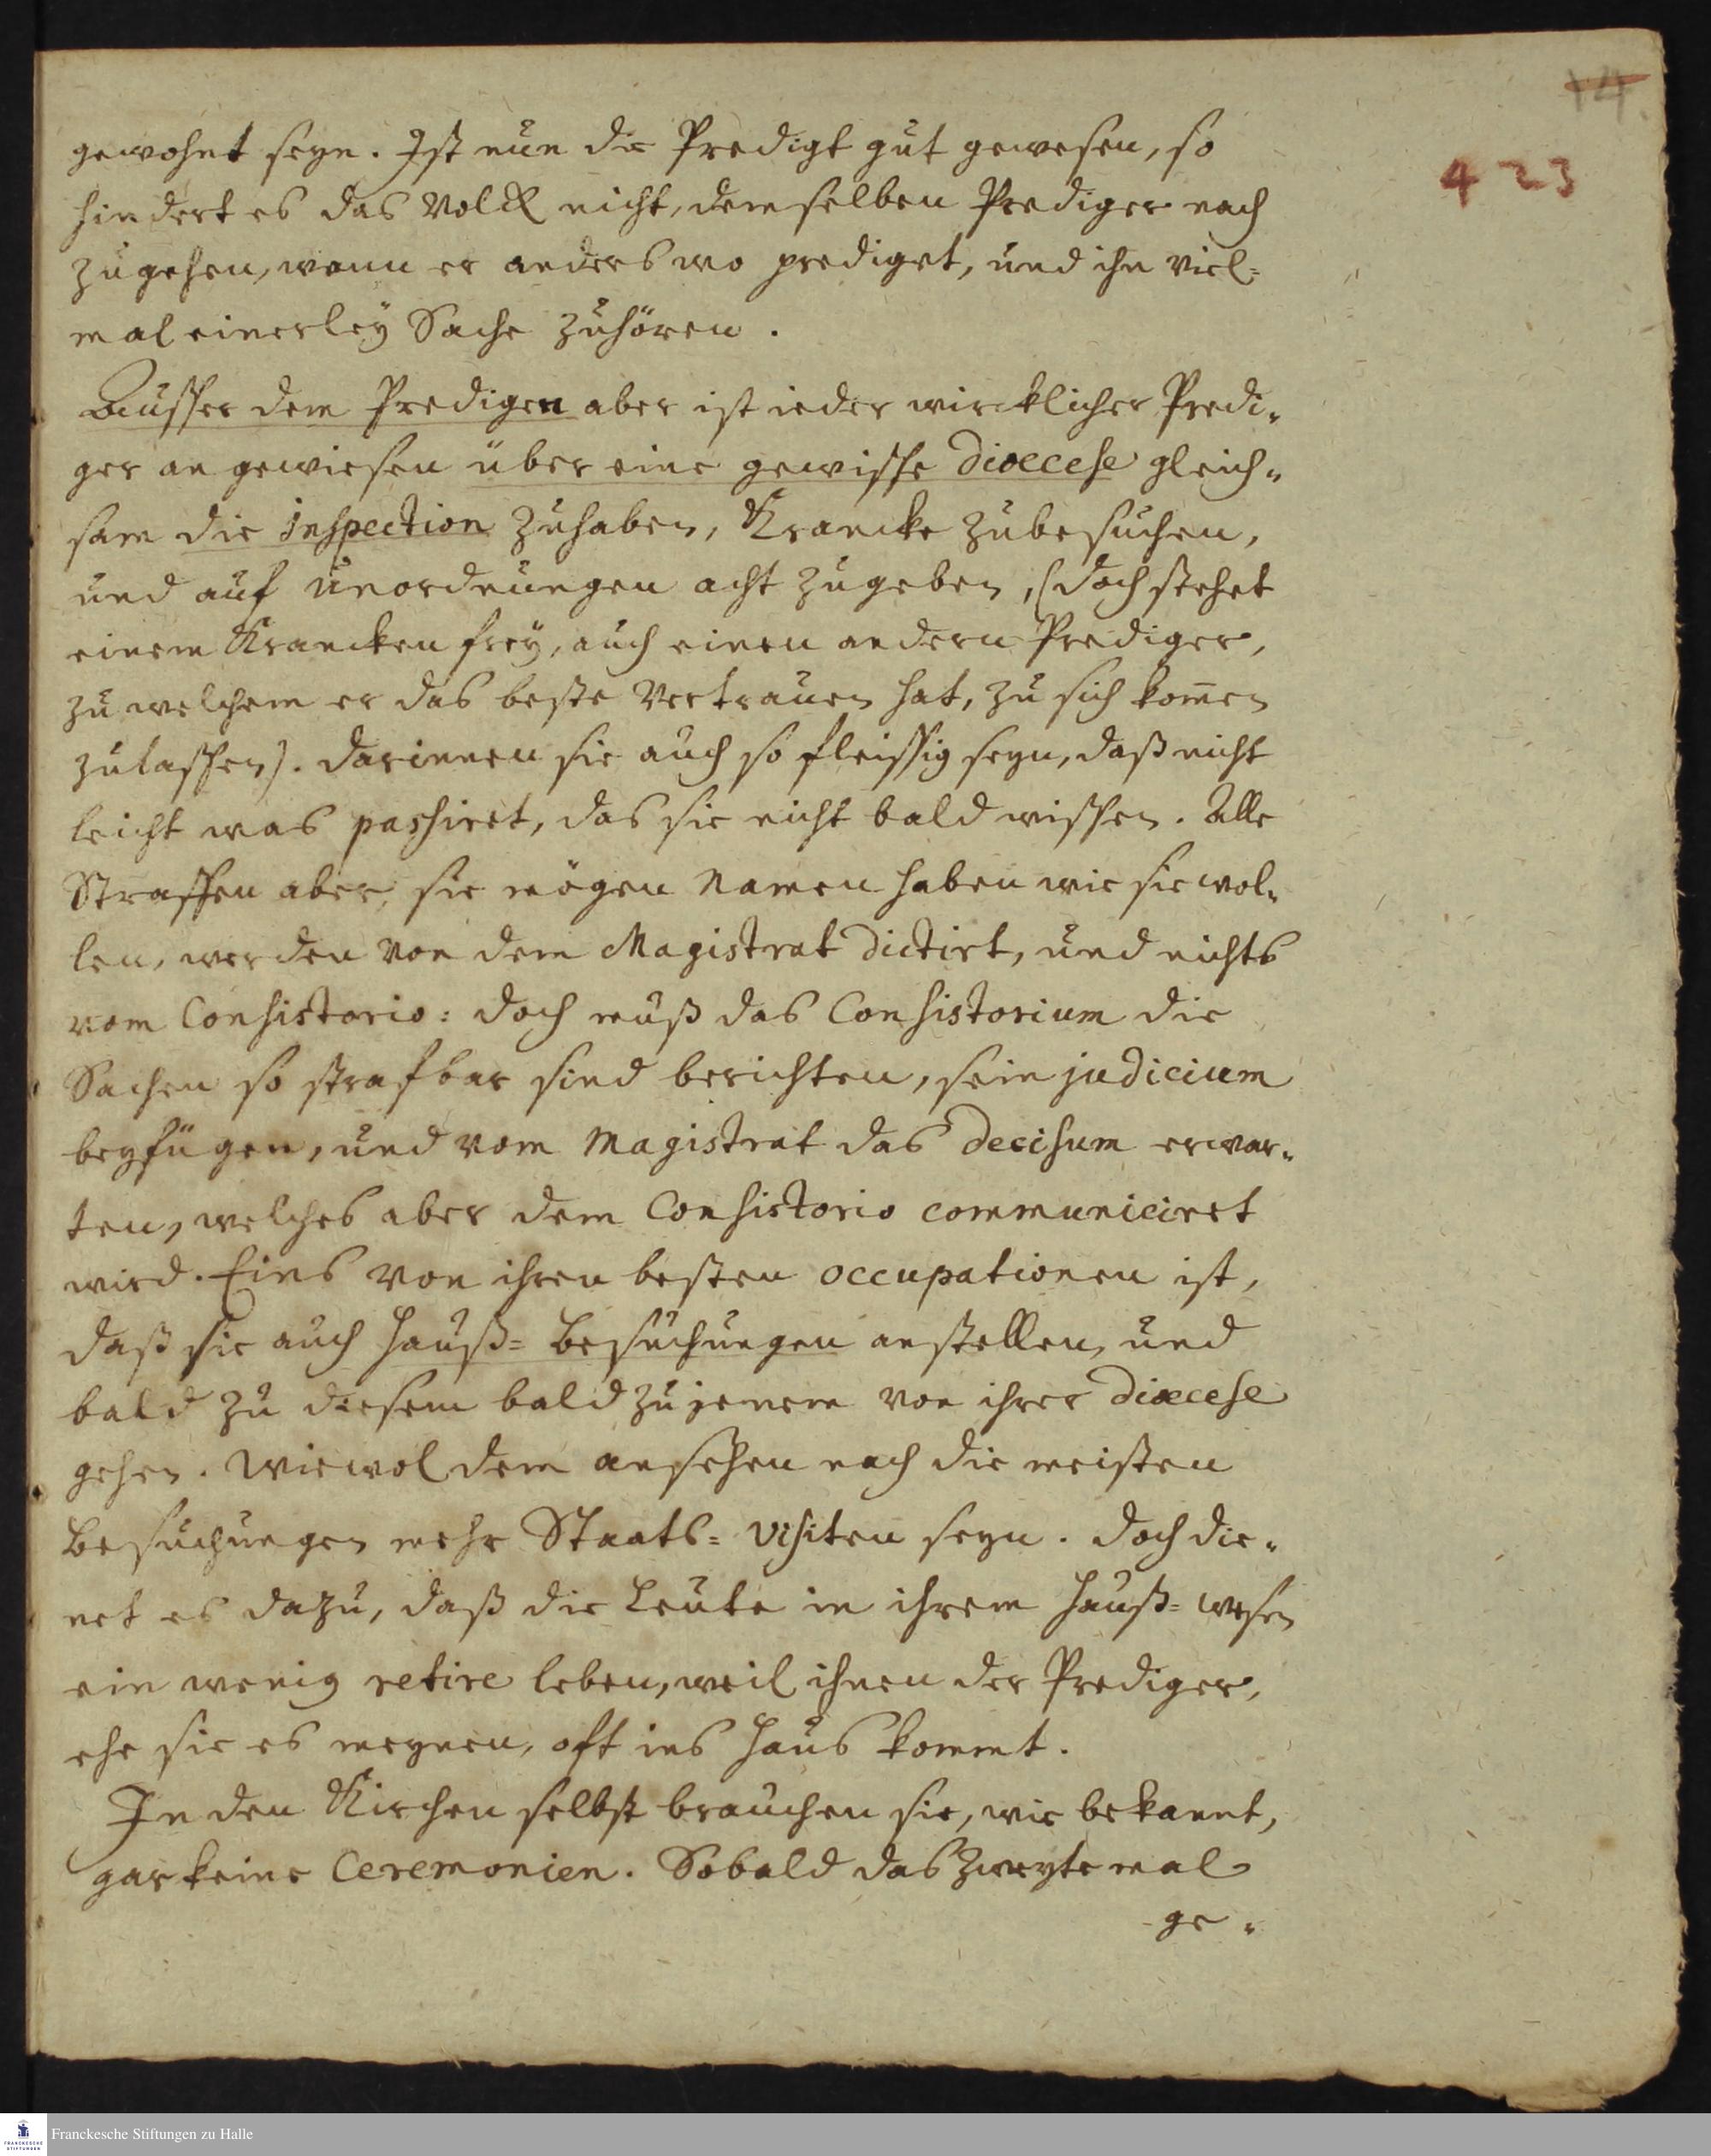 14
423
gewohnt seyn. Ist nun die Predigt gut gewesen, so
hindert es das Volck nicht, demselben Prediger nach
zugehen, wann er anders wo prediget, und ihn viel=
mal einerley Sache zuhören.
Ausser dem Predigen aber ist ieder wircklicher Predi=
ger angewiesen über eine gewisse dioecese gleich=
sam die inspection zuhaben, Krancke zubesuchen,
und auf Unordnungen acht zugeben, (doch stehet
einem Krancken frey, auch einen andern Prediger,
zu welchem er das beste Vertrauen hat, zu sich kom̄en
zulassen). Darinnen sie auch so fleissig seyn, daß nicht
leicht was passiret, das sie nicht bald wissen. Alle
Straffen aber, sie mögen Namen haben wie sie wol=
len, werden von dem Magistrat dictirt, und nichts
vom Consistorio: doch muß das Consistorium die
Sachen so strafbar sind berichten, sein judicium
beyfügen, und vom Magistrat das decisum erwar=
ten, welches aber dem Consistorio communiciret
wird. Eins von ihren besten occupationen ist,
daß sie auch Hauß=Besuchungen anstellen, und
bald zu diesem bald zu jenem von ihrer dioecese
gehen. Wiewol dem ansehen nach die meisten
Besuchungen mehr Staats=Visiten seyn. Doch die=
net es dazu, daß die Leute in ihrem Hauß=wesen
ein wenig retire leben, weil ihnen der Prediger,
ehe sie es meynen, oft ins Haus kommt.
In den Kirchen selbst brauchen sie, wie bekannt,
gar keine Ceremonien. Sobald das zweyte mal
ge=
Franckesche Stiftungen zu Halle
FRANCKESCHE
STIFTUNGEN